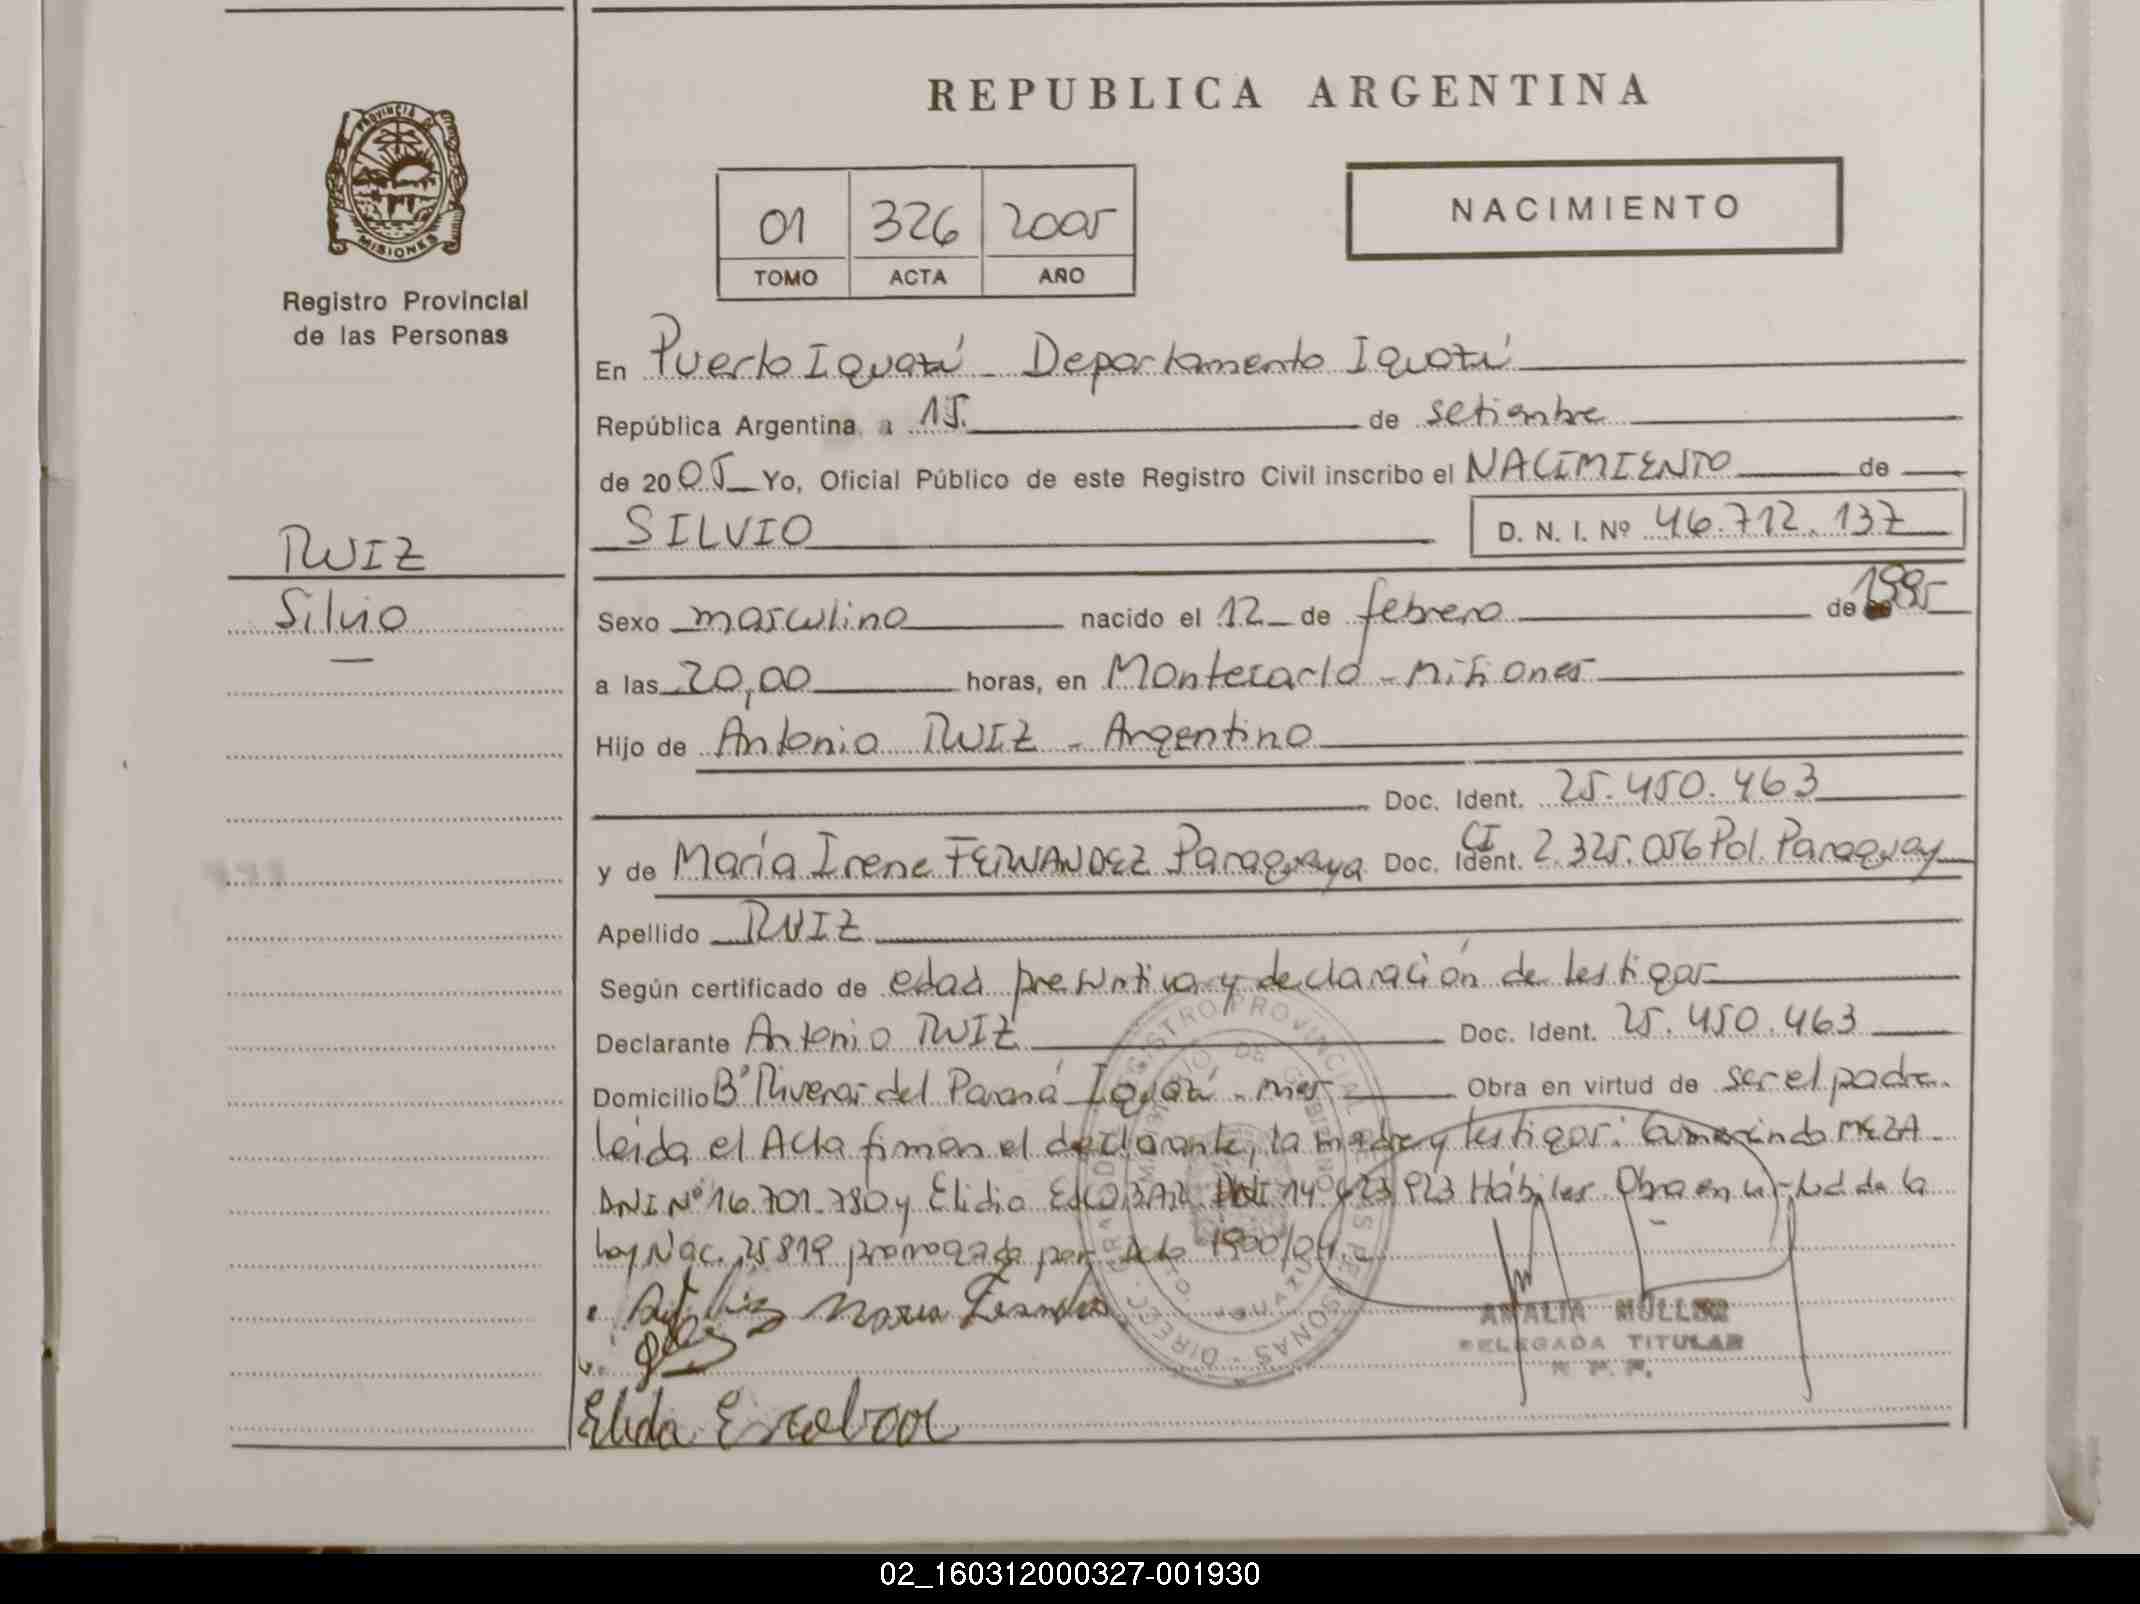 REPUBLICA ARGENTINA
PROVINCIA DE
MISIONES
Registro Provincial
de las Personas
01 326 2005
TOMO ACTA AÑO
NACIMIENTO
En Puerto Iguazú - Departamento Iguazú
República Argentina a 15. de setiembre
de 2005 Yo, Oficial Público de este Registro Civil inscribo el NACIMIENTO de
SILVIO D. N. I. Nº 46.712.137
RUIZ
Silvio
Sexo masculino nacido el 12 de febrero de 1995
a las 20,00 horas, en Montecarlo - Misiones
Hijo de Antonio RUIZ - Argentino
Doc. Ident. 25.450.463
y de María Irene FERNANDEZ Paraguaya Doc. Ident. CI 2.325.056 Pol. Paraguay
Apellido RUIZ
Según certificado de edad presuntiva y declaración de testigos
Declarante Antonio RUIZ Doc. Ident. 25.450.463
Domicilio Bº Riveras del Paraná Iguazú - Mnes Obra en virtud de ser el padre.
leida el Acta firman el declarante, la madre y testigos: MEZA
DNI Nº 16.701.780 y Elidio ESCOBAR DNI 14. 923 Hábiles. Obra en virtud de la
Ley Nac. 25819 prorrogada por Dcto 1900/04.
Maria Fernandez
Elida Escobar
REGISTRO PROVINCIAL DE LAS PERSONAS - DIRECC. GRAL.
MINISTERIO DE GOBIERNO
AMALIA MÜLLER
DELEGADA TITULAR
R. P. P.
02_160312000327-001930